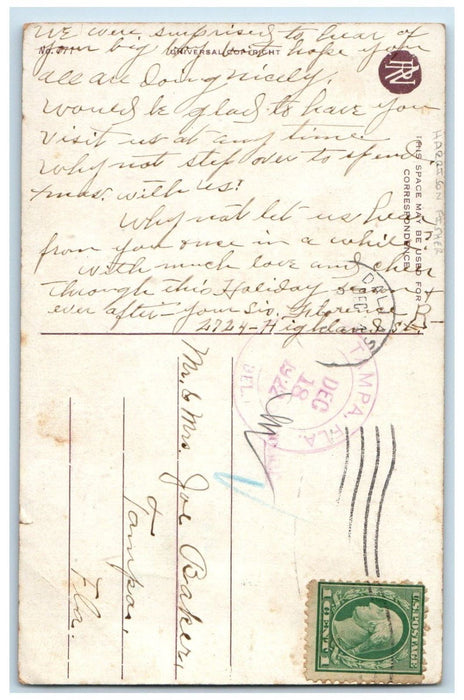 We were surprised to hear of
your big boy. hope you
No.
UNIVERSAL COPYRIGHT
all are doing nicely.
would be glad to have you
visit us at any time
why not step over to spend
Xmas. with us!
Why not let us hear
from you once in a while
with much love and cheer
through this Holiday season &
ever after - your Sis. Florence B-
2724 - Highland St.
RN
THIS SPACE MAY BE USED FOR
CORRESPONDENCE
HARRISON FISHER
DALLAS
DEC
TAMPA, FLA.
DEC
18
1922
DEL.
Mr. & Mrs. Joe Baker,
Tampa,
Fla.
U.S. POSTAGE
1 CENT 1